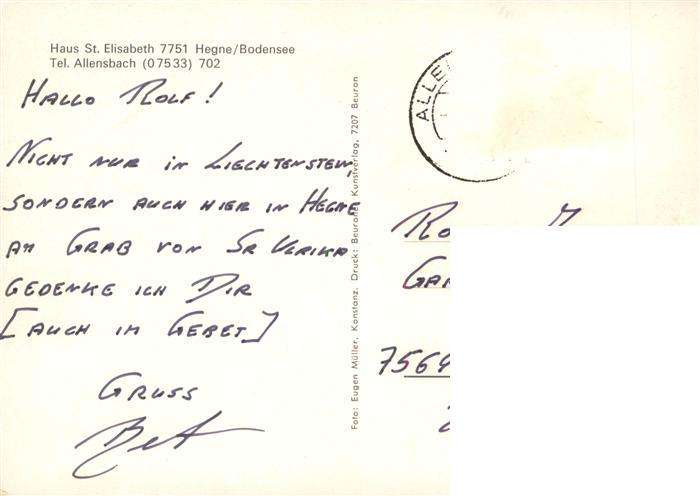 Haus St. Elisabeth 7751 Hegne/Bodensee
Tel. Allensbach (07533) 702
HALLO ROLF!
NICHT NUR IN LIECHTENSTEIN,
SONDERN AUCH HIER IN HEGNE
AM GRAB VON SR ULRIKA
GEDENKE ICH DIR
[AUCH IM GEBET]
GRUSS
Foto: Eugen Müller, Konstanz. Druck: Beuroner Kunstverlag, 7207 Beuron
ALLE
RO
GAR
7564